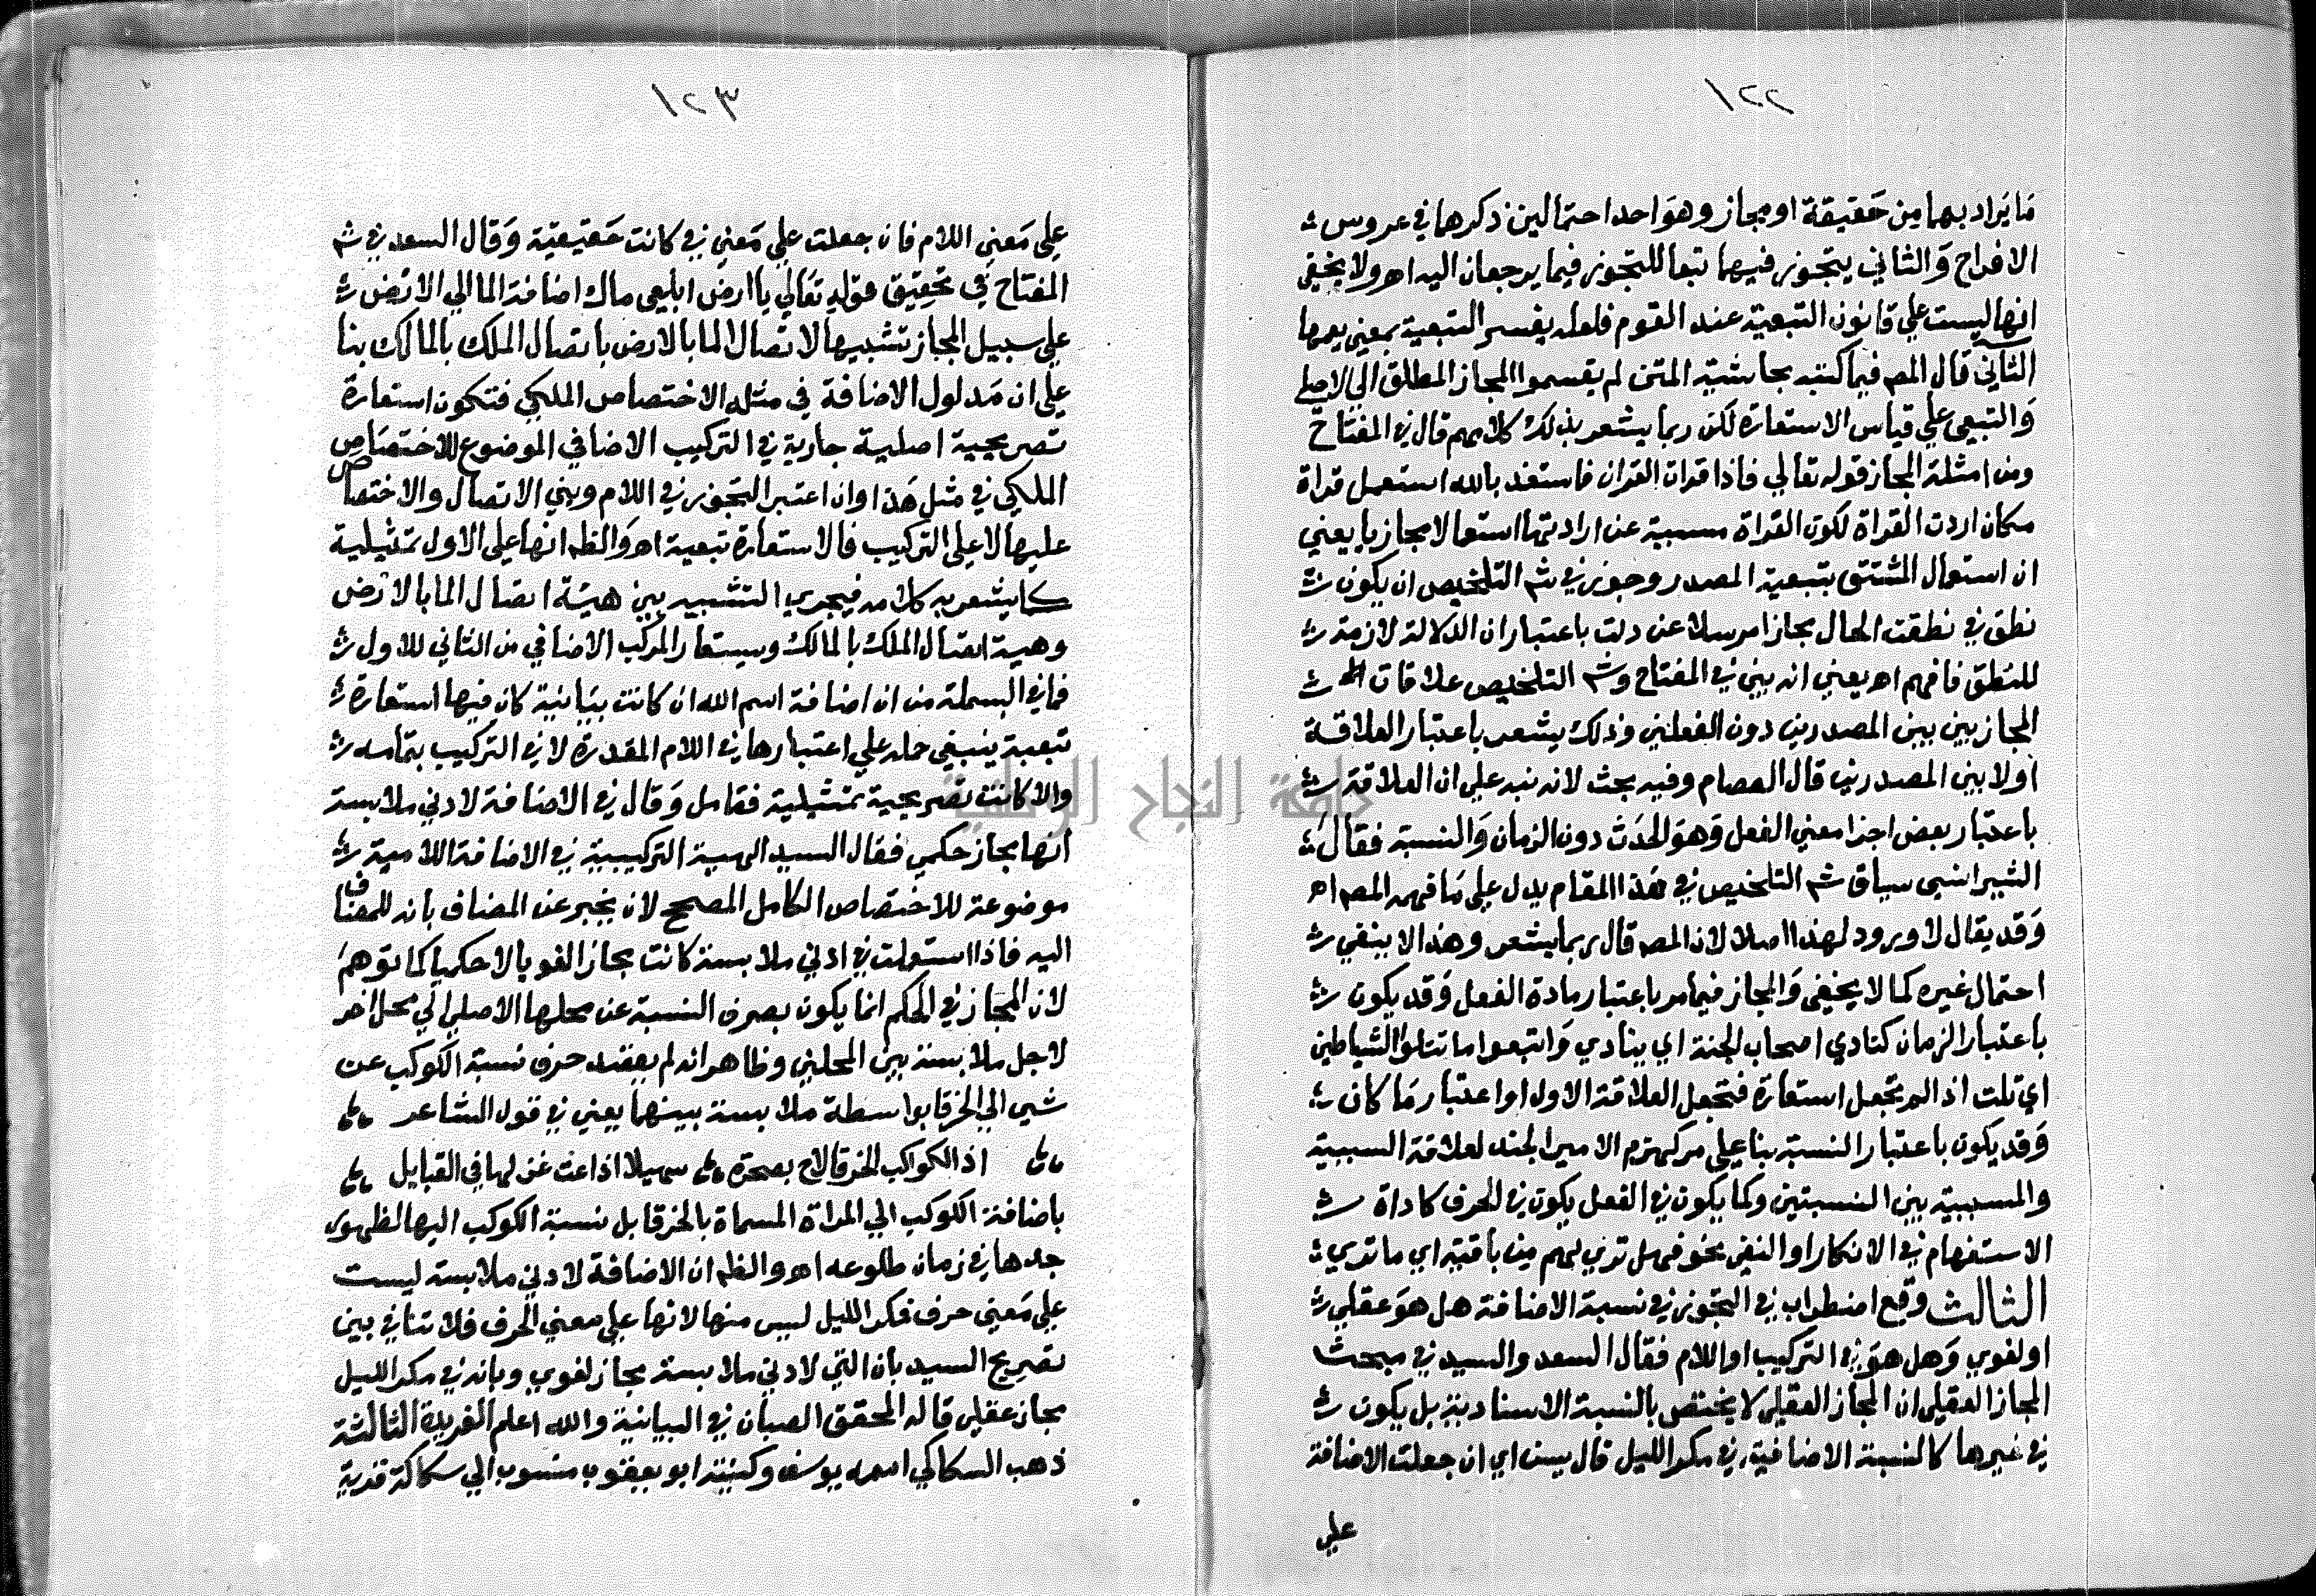 ١٢٢
ما يراد بهما من حقيقة او مجاز وهو احد احتمالين ذكرها في عروس
الافراح والثاني يتجوز فيهما تبعا للتجوز فيما يرجعان اليه اه ولا يخفى
انها ليست على قانون التبعية عند القوم فلعله يفسر التبعية بمعنى يعمها
الثاني قال المص فيما كتبه بحاشية المتن لم يقسموا المجاز المطلق الي الاصلي
والتبعي علي قياس الاستعارة لكن ربما يشعر بذلك كلامهم قال في المفتاح
ومن امثلة المجاز قوله تعالي فاذا قرات القران فاستعذ بالله استعمل قراة
مكان اردت القراة لكون القراة مسببية عن ارادتها استعمالا مجازيا يعني
ان استعمال المشتق بتبعية المصدر وجوز في شم التلخيص ان يكون
نطق في نطقت الحال مجازا مرسلا عن دلت باعتبار ان الدلالة لازمة
للنطق فافهم اه يعني انه بين في المفتاح وشم التلخيص علاقات
المجاز بين بين المصدرين دون الفعلين وذلك يشعر باعتبار العلاقة
اولا بين المصدرين قال العصام وفيه بحث لانه نبه علي ان العلاقة
باعتبار بعض اجزا معني الفعل وهو الحدث دون الزمان والنسبة فقال
الشيرانسي سياق شم التلخيص في هذا المقام يدل علي ما فهمه المص اه
وقد يقال لا ورود لهذا اصلا لان المص قال ربما يشعر وهذا لا ينفي
احتمال غيره كما لا يخفى والمجاز فيما مر باعتبار مادة الفعل وقد يكون
باعتبار الزمان كنادي اصحاب الجنة اي ينادي واتبعوا ما تتلوا الشياطين
اي تلت اذا لم تجعل استعارة فتجعل العلاقة الاول او اعتبار ما كان
وقد يكون باعتبار النسبة بنا علي مر كهزم الامير الجند لعلاقة السببية
والمسببية بين النسبتين وكما يكون في الفعل يكون في الحرف كاداة
الاستفهام في الانكار او النفي نحو فهل تري لهم من باقية اي ما تري
الثالث وقع اضطراب في التجوز في نسبة الاضافة هل هو عقلي
او لغوي وهل هو في التركيب او اللام فقال السعد والسيد في مبحث
المجاز العقلي ان المجاز العقلي لا يختص بالنسبة الاسنادية بل يكون
في غيرها كالنسبة الاضافية في مكر الليل قال يس اي ان جعلت الاضافة
علي
١٢٣
علي معني اللام فان جعلت علي معني في كانت حقيقية وقال السعد في شم
المفتاح في تحقيق قوله تعالي يا ارض ابلعي ماك اضافة الما الي الارض
علي سبيل المجاز تشبيها لاتصال الما بالارض باتصال الملك بالمالك بنا
علي ان مدلول الاضافة في مثله الاختصاص الملكي فتكون استعارة
تصريحية اصلية جارية في التركيب الاضافي الموضوع للاختصاص
الملكي في مثل هذا وان اعتبر التجوز في اللام وبني الاتصال والاختصاص
عليها لا علي التركيب فالاستعارة تبعية اه والظم انها علي الاول تمثيلية
كما يشعر به كلامه فيجري التشبيه بين هيئة اتصال الما بالارض
وهيئة اتصال الملك بالمالك ويستعار المركب الاضافي من الثاني للاول
فما في البسملة من ان اضافة اسم الله ان كانت بيانية كان فيها استعارة
تبعية ينبغي حمله علي اعتبارها في اللام المقدرة لا في التركيب بتمامه
والا كانت تصريحية تمثيلية فتامل وقال في الاضافة لادني ملابسة
انها مجاز حكمي فقال السيد الهيية التركيبية في الاضافة اللامية
موضوعة للاختصاص الكامل المصحح لان يخبر عن المضاف بانه للمضاف
اليه فاذا استعملت في ادني ملابسة كانت مجازا لغويا لا حكميا كما توهم
لان المجاز في الحكم انما يكون بصرف النسبة عن محلها الاصلي الي محل اخر
لاجل ملابسة بين المحلين وظاهر انه لم يقصد صرف نسبة الكوكب عن
شي الي الخرقا بواسطة ملابسة بينهما يعني في قول الشاعر
اذا الكواكب الخرقا لاح بصحرة سهيلا اذاعت غزلها في القبايل
باضافة الكوكب الي المراة المسماة بالخرقا بل نسبة الكوكب اليها لظهور
جدها في زمان طلوعه اه والظم ان الاضافة لادني ملابسة ليست
علي معني حرف فمكر الليل ليس منها لانها علي معني الحرف فلا تنافي بين
تصريح السيد بان التي لادني ملابسة مجاز لغوي وبانه في مكر الليل
مجاز عقلي قاله المحقق الصبان في البيانية والله اعلم الفريدة الثالثة
ذهب السكاكي اسمه يوسف وكنيته ابو يعقوب منسوب الي سكاكة قرية
جامعة النجاح الوطنية